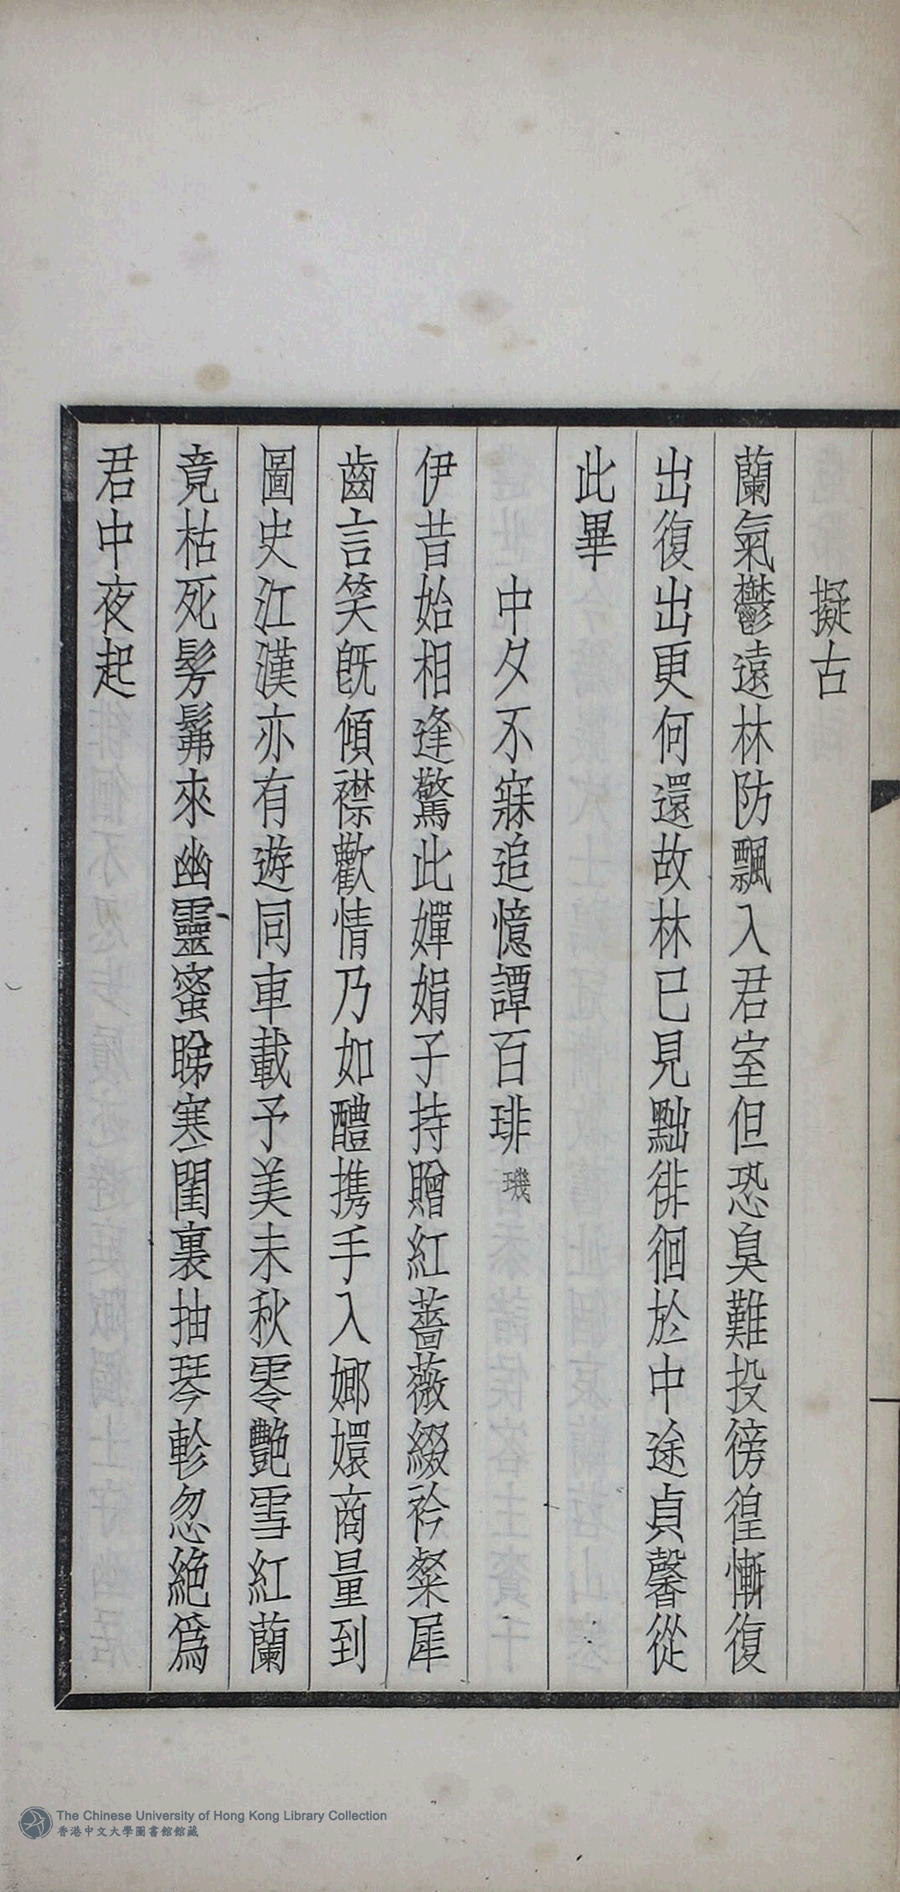 擬古
蘭氣鬱遠林防飄入君室但恐臭難投徬徨慚復
出復出更何還故林已見黜徘徊於中途貞馨從
此畢
中夕不寐追憶譚百琲璣
伊昔始相逢驚此嬋娟子持贈紅薔薇綴衿粲犀
齒言笑旣傾襟歡情乃如醴携手入嫏嬛商量到
圖史江漢亦有遊同車載予美未秋零艷雪紅蘭
竟枯死髣髴來幽靈蜜睇寒閨裏抽琴軫忽絶爲
君中夜起
The Chinese University of Hong Kong Library Collection
香港中文大學圖書館館藏